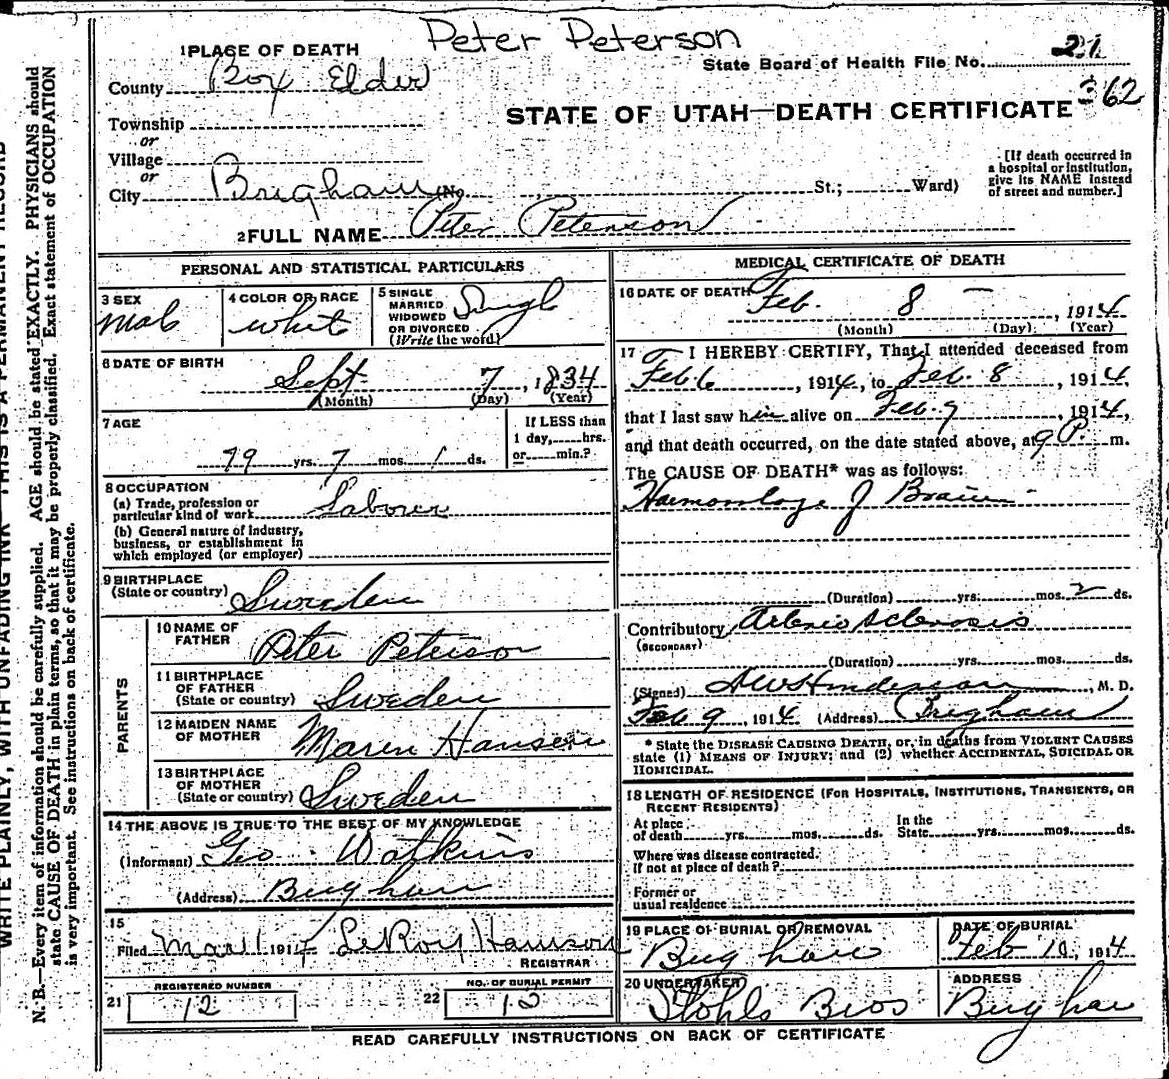 Peter Peterson
1 PLACE OF DEATH
State Board of Health File No. 21
County Box Elder
362
STATE OF UTAH—DEATH CERTIFICATE
Township
or
Village
or
City Brigham (No. St.; Ward)
[If death occurred in
a hospital or institution,
give its NAME instead
of street and number.]
2 FULL NAME Peter Peterson
PERSONAL AND STATISTICAL PARTICULARS
3 SEX
Male
4 COLOR OR RACE
White
5 SINGLE
MARRIED
WIDOWED
OR DIVORCED
(Write the word)
Single
6 DATE OF BIRTH
Sept 7, 1834
(Month) (Day) (Year)
7 AGE
79 yrs. 7 mos. 1 ds.
If LESS than
1 day, hrs.
or min.?
8 OCCUPATION
(a) Trade, profession or
particular kind of work Laborer
(b) General nature of industry,
business, or establishment in
which employed (or employer)
9 BIRTHPLACE
(State or country) Sweden
PARENTS
10 NAME OF
FATHER Peter Peterson
11 BIRTHPLACE
OF FATHER
(State or country) Sweden
12 MAIDEN NAME
OF MOTHER Maren Hansen
13 BIRTHPLACE
OF MOTHER
(State or country) Sweden
14 THE ABOVE IS TRUE TO THE BEST OF MY KNOWLEDGE
(Informant) Geo. Watkins
(Address) Brigham
15
Filed Mar 11 1914 LeRoy Hanson
REGISTRAR
21 REGISTERED NUMBER
12
22 NO. OF BURIAL PERMIT
12
MEDICAL CERTIFICATE OF DEATH
16 DATE OF DEATH
Feb. 8 —, 1914
(Month) (Day) (Year)
17 I HEREBY CERTIFY, That I attended deceased from
Feb 6, 1914, to Feb. 8, 1914,
that I last saw him alive on Feb. 9, 1914,
and that death occurred, on the date stated above, at 9 P. m.
The CAUSE OF DEATH* was as follows:
Haemorrhage of Brain
(Duration) yrs. mos. 2 ds.
Contributory Arterio sclerosis
(SECONDARY)
(Duration) yrs. mos. ds.
(Signed) , M. D.
Feb 9, 1914 (Address) Brigham
* State the DISEASE CAUSING DEATH, or, in deaths from VIOLENT CAUSES
state (1) MEANS OF INJURY; and (2) whether ACCIDENTAL, SUICIDAL OR
HOMICIDAL.
18 LENGTH OF RESIDENCE (FOR HOSPITALS, INSTITUTIONS, TRANSIENTS, OR
RECENT RESIDENTS)
At place
of death yrs. mos. ds.
In the
State yrs. mos. ds.
Where was disease contracted.
if not at place of death?
Former or
usual residence
19 PLACE OF BURIAL OR REMOVAL
Brigham
DATE OF BURIAL
Feb 10, 1914
20 UNDERTAKER
Stohls Bros
ADDRESS
Brigham
READ CAREFULLY INSTRUCTIONS ON BACK OF CERTIFICATE
WRITE PLAINLY, WITH UNFADING INK—THIS IS A PERMANENT RECORD
N. B.—Every item of information should be carefully supplied. AGE should be stated EXACTLY. PHYSICIANS should
state CAUSE OF DEATH in plain terms, so that it may be properly classified. Exact statement of OCCUPATION
is very important. See instructions on back of certificate.